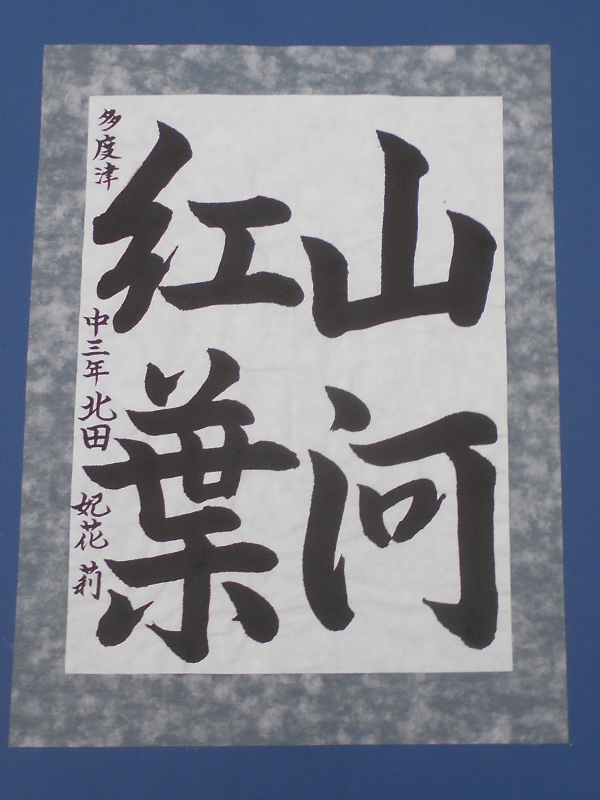 山河
紅葉
多度津 中三年 北田 妃花莉